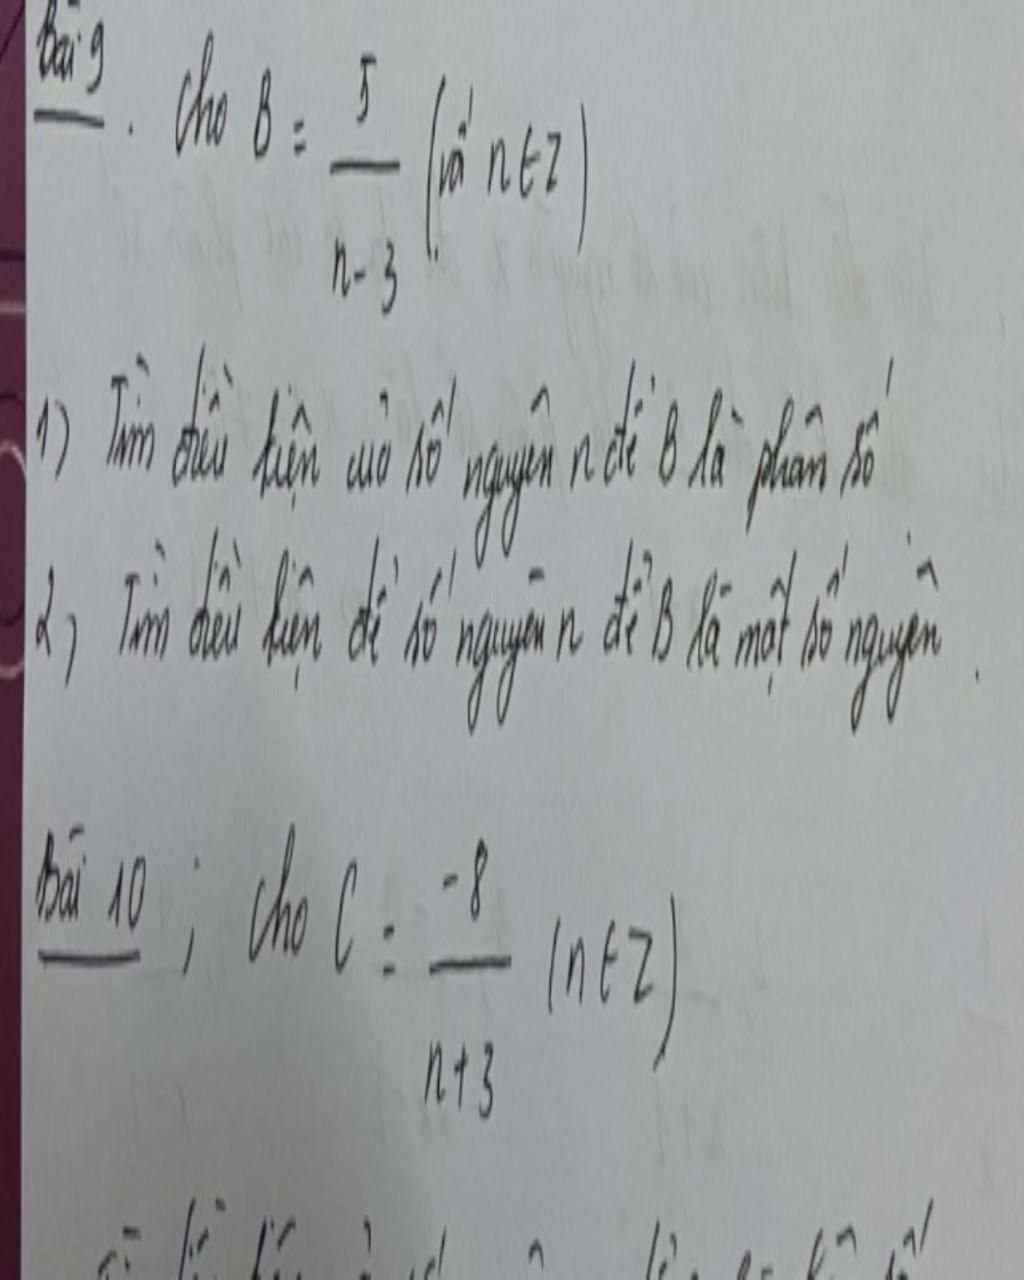 Bài 9. Cho B = 5 / n-3 (với n ∈ Z)
1) Tìm điều kiện của số nguyên n để B là phân số
2, Tìm điều kiện để số nguyên n để B là một số nguyên.
Bài 10; Cho C = -8 / n+3 (n ∈ Z)